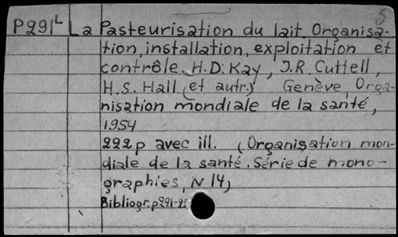 5
P291L La Pasteurisation du lait. Organisa-
tion, installation, exploitation et
contrôle. H.D. Kay, J.R. Cuttell,
H.S. Hall (et autr.) Genève, Orga-
nisation mondiale de la santé,
1954
222p avec ill. (Organisation mon-
diale de la santé. Série de mono-
graphies, N 14)
Bibliogr. p 291-